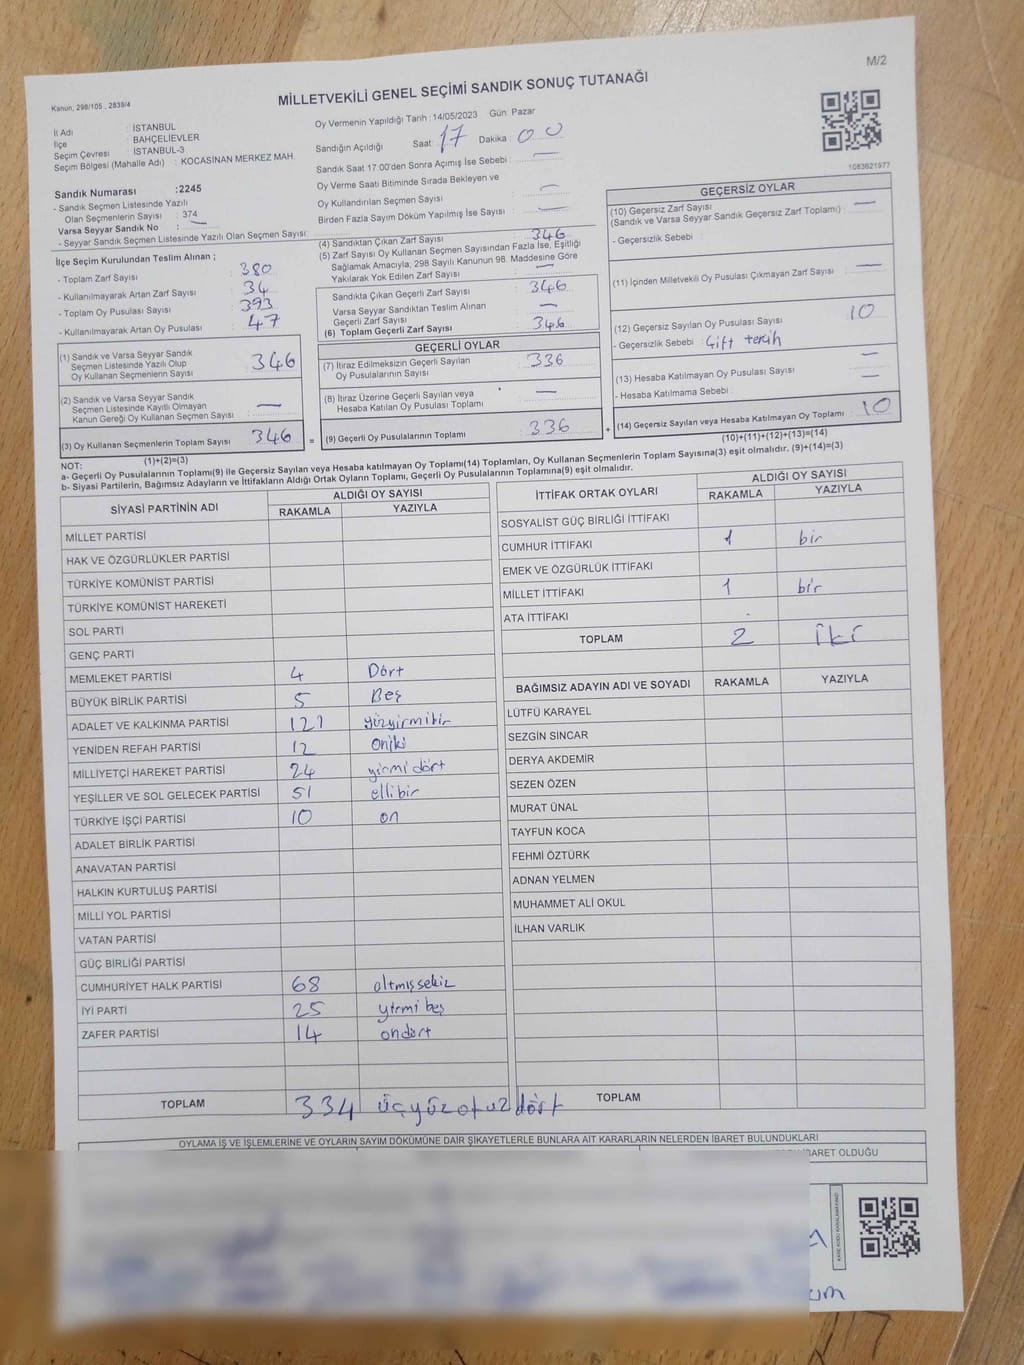 M/2
Kanun; 298/105 , 2839/4
MİLLETVEKİLİ GENEL SEÇİMİ SANDIK SONUÇ TUTANAĞI
İl Adı : İSTANBUL
İlçe : BAHÇELİEVLER
Seçim Çevresi : İSTANBUL-3
Seçim Bölgesi (Mahalle Adı) : KOCASİNAN MERKEZ MAH.
Sandık Numarası :2245
- Sandık Seçmen Listesinde Yazılı
Olan Seçmenlerin Sayısı : 374
Varsa Seyyar Sandık No : —
- Seyyar Sandık Seçmen Listesinde Yazılı Olan Seçmen Sayısı:
Oy Vermenin Yapıldığı Tarih :14/05/2023 Gün: Pazar
Sandığın Açıldığı Saat : 17 Dakika : 00
Sandık Saat 17:00'den Sonra Açımış İse Sebebi : —
Oy Verme Saati Bitiminde Sırada Bekleyen ve
Oy Kullandırılan Seçmen Sayısı : —
Birden Fazla Sayım Döküm Yapılmış İse Sayısı : —
1083621977
İlçe Seçim Kurulundan Teslim Alınan ;
- Toplam Zarf Sayısı : 380
- Kullanılmayarak Artan Zarf Sayısı : 34
- Toplam Oy Pusulası Sayısı : 393
- Kullanılmayarak Artan Oy Pusulası : 47
(1) Sandık ve Varsa Seyyar Sandık
Seçmen Listesinde Yazılı Olup
Oy Kullanan Seçmenlerin Sayısı : 346
(2) Sandık ve Varsa Seyyar Sandık
Seçmen Listesinde Kayıtlı Olmayan
Kanun Gereği Oy Kullanan Seçmen Sayısı : —
(3) Oy Kullanan Seçmenlerin Toplam Sayısı : 346
(1)+(2)=(3)
(4) Sandıktan Çıkan Zarf Sayısı : 346
(5) Zarf Sayısı Oy Kullanan Seçmen Sayısından Fazla İse, Eşitliği
Sağlamak Amacıyla; 298 Sayılı Kanunun 98. Maddesine Göre
Yakılarak Yok Edilen Zarf Sayısı : —
Sandıkta Çıkan Geçerli Zarf Sayısı : 346
Varsa Seyyar Sandıktan Teslim Alınan
Geçerli Zarf Sayısı : —
(6) Toplam Geçerli Zarf Sayısı : 346
GEÇERLİ OYLAR
(7) İtiraz Edilmeksizin Geçerli Sayılan
Oy Pusulalarının Sayısı : 336
(8) İtiraz Üzerine Geçerli Sayılan veya
Hesaba Katılan Oy Pusulası Toplamı : —
= (9) Geçerli Oy Pusulalarının Toplamı : 336 +
GEÇERSİZ OYLAR
(10) Geçersiz Zarf Sayısı
(Sandık ve Varsa Seyyar Sandık Geçersiz Zarf Toplamı) : —
- Geçersizlik Sebebi :
(11) İçinden Milletvekili Oy Pusulası Çıkmayan Zarf Sayısı : —
(12) Geçersiz Sayılan Oy Pusulası Sayısı : 10
- Geçersizlik Sebebi : Çift tercih
(13) Hesaba Katılmayan Oy Pusulası Sayısı : —
- Hesaba Katılmama Sebebi : —
(14) Geçersiz Sayılan veya Hesaba Katılmayan Oy Toplamı : 10
(10)+(11)+(12)+(13)=(14)
NOT:
a- Geçerli Oy Pusulalarının Toplamı(9) ile Geçersiz Sayılan veya Hesaba katılmayan Oy Toplamı(14) Toplamları, Oy Kullanan Seçmenlerin Toplam Sayısına(3) eşit olmalıdır. (9)+(14)=(3)
b- Siyasi Partilerin, Bağımsız Adayların ve İttifakların Aldığı Ortak Oyların Toplamı, Geçerli Oy Pusulalarının Toplamına(9) eşit olmalıdır.
SİYASİ PARTİNİN ADI ALDIĞI OY SAYISI
RAKAMLA YAZIYLA
MİLLET PARTİSİ
HAK VE ÖZGÜRLÜKLER PARTİSİ
TÜRKİYE KOMÜNİST PARTİSİ
TÜRKİYE KOMÜNİST HAREKETİ
SOL PARTİ
GENÇ PARTİ
MEMLEKET PARTİSİ 4 Dört
BÜYÜK BİRLİK PARTİSİ 5 Beş
ADALET VE KALKINMA PARTİSİ 121 yüzyirmibir
YENİDEN REFAH PARTİSİ 12 oniki
MİLLİYETÇİ HAREKET PARTİSİ 24 yirmi dört
YEŞİLLER VE SOL GELECEK PARTİSİ 51 ellibir
TÜRKİYE İŞÇİ PARTİSİ 10 on
ADALET BİRLİK PARTİSİ
ANAVATAN PARTİSİ
HALKIN KURTULUŞ PARTİSİ
MİLLİ YOL PARTİSİ
VATAN PARTİSİ
GÜÇ BİRLİĞİ PARTİSİ
CUMHURİYET HALK PARTİSİ 68 altmışsekiz
İYİ PARTİ 25 yirmi beş
ZAFER PARTİSİ 14 ondört
TOPLAM 334 üçyüzotuzdört
İTTİFAK ORTAK OYLARI ALDIĞI OY SAYISI
RAKAMLA YAZIYLA
SOSYALİST GÜÇ BİRLİĞİ İTTİFAKI
CUMHUR İTTİFAKI 1 bir
EMEK VE ÖZGÜRLÜK İTTİFAKI
MİLLET İTTİFAKI 1 bir
ATA İTTİFAKI
TOPLAM 2 iki
BAĞIMSIZ ADAYIN ADI VE SOYADI RAKAMLA YAZIYLA
LÜTFÜ KARAYEL
SEZGİN SİNCAR
DERYA AKDEMİR
SEZEN ÖZEN
MURAT ÜNAL
TAYFUN KOCA
FEHMİ ÖZTÜRK
ADNAN YELMEN
MUHAMMET ALİ OKUL
İLHAN VARLIK
TOPLAM
OYLAMA İŞ VE İŞLEMLERİNE VE OYLARIN SAYIM DÖKÜMÜNE DAİR ŞİKAYETLERLE BUNLARA AİT KARARLARIN NELERDEN İBARET BULUNDUKLARI
İBARET OLDUĞU